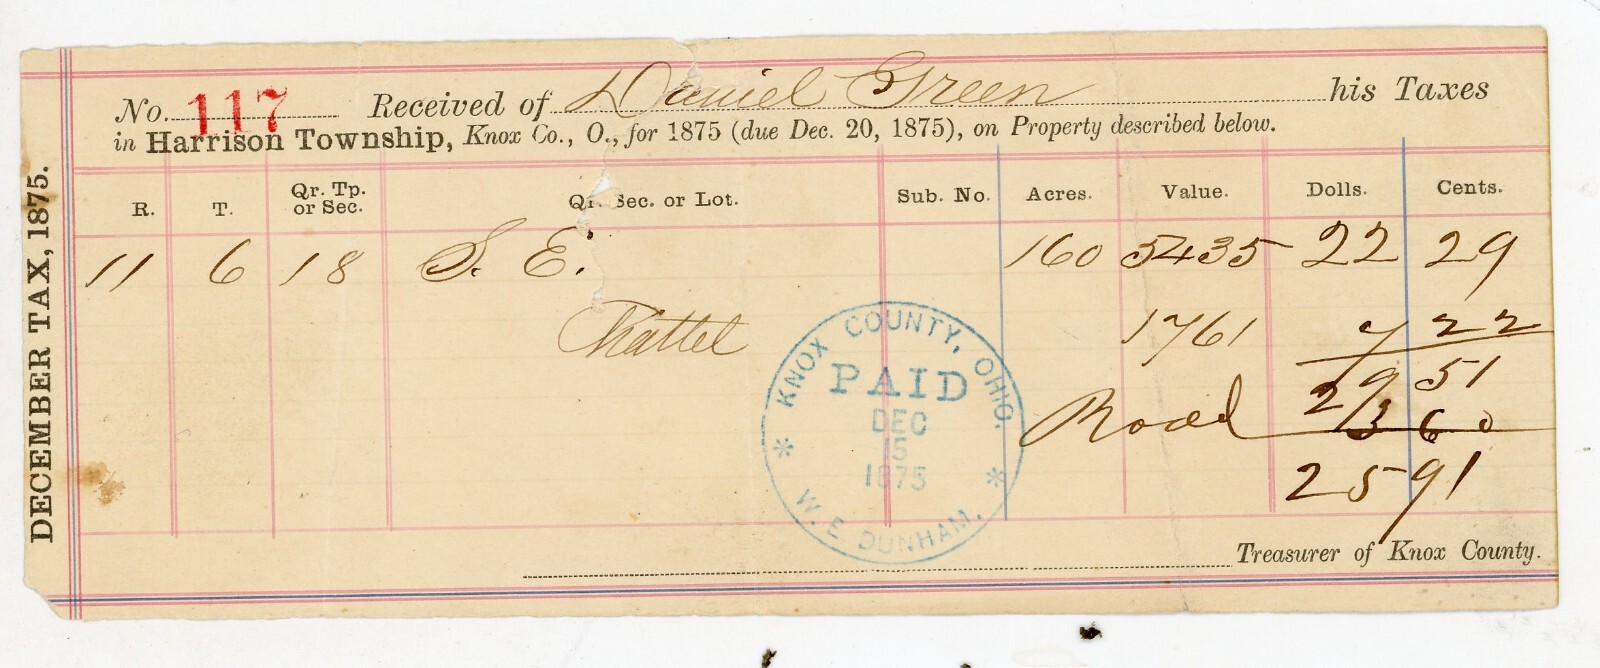 DECEMBER TAX, 1875.
No. 117 Received of Daniel Green his Taxes
in Harrison Township, Knox Co., O., for 1875 (due Dec. 20, 1875), on Property described below.
R. T. Qr. Tp. or Sec. Qr. Sec. or Lot. Sub. No. Acres. Value. Dolls. Cents.
11 6 18 S. E. 160 5435 22 29
Chattel 1761 7 22
29 51
Road 3 60
25 91
KNOX COUNTY, OHIO.
PAID
DEC
15
1875
W. E. DUNHAM.
Treasurer of Knox County.